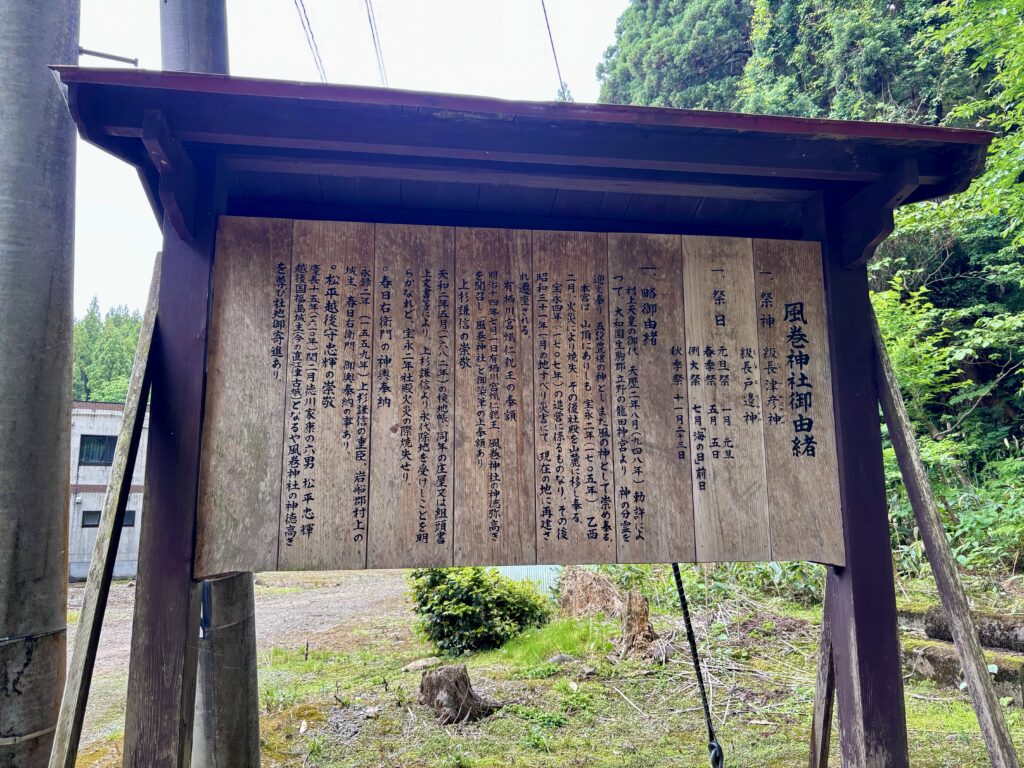 風巻神社御由緒
一 祭神 級長津彦神
級長戸邊神
一 祭日 元旦祭 一月 元旦
春季祭 五月 五日
例大祭 七月「海の日」前日
秋季祭 十一月二十三日
一 略御由緒
村上天皇の御代 天歴二年八月(九四八年) 勅許によ
って、大和国生駒郡 立野の龍田神宮より 神の分霊を
迎え奉り、五穀豊穣の神として また風の神として崇め奉る
本宮は、山頂にありしも 宝永二年(一七〇五年) 乙酉
二月、火災により焼失、その後社殿を山麓に移し奉る
宝永四年(一七〇七年)の造営に係るものなり、その後
昭和三十一年一月の地すべり災害にて、現在の地に再建さ
れ遷座される
。有栖川宮熾仁親王の奉額
明治十四年七月一日有栖川宮熾仁親王、風巻神社の神徳弥高き
を聞召し、風巻神社と御染筆の上奉額あり
。上杉謙信の崇敬
天和二年五月(一六八二年)の検地帳、同年の庄屋又は組頭書
上文書等により、上杉謙信より、永代除地を受けしことを明
らかなれど、宝永二年社殿火災の際焼失せり。
。春日右衛門の神輿奉納
永録二年(一五五九年)上杉謙信の重臣、岩船郡村上の
城主、春日右衛門、御輿奉納の事あり。
。松平越後守忠輝の崇敬
慶長十五年(一六一〇年)閏二月徳川家康の六男 松平忠輝
越後国福島城主(今の直江津古城)となるや風巻神社の神徳高き
を尊び社地御寄進あり。